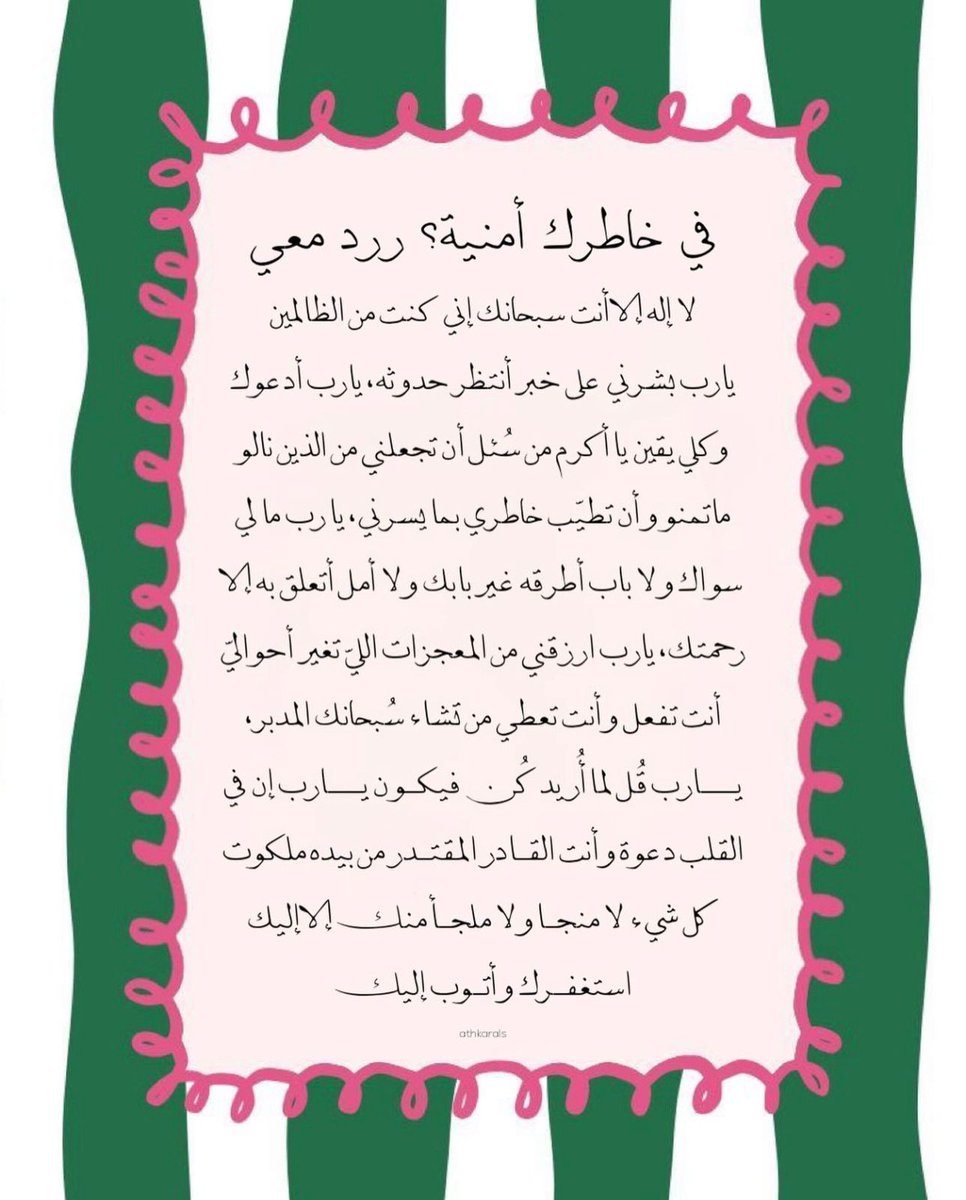 في خاطرك أمنية؟ ررد معي
لا إله إلا أنت سبحانك إني كنت من الظالمين
يارب بشرني على خبر أنتظر حدوثه، يارب أدعوك
وكلي يقين يا أكرم من سُئل أن تجعلني من الذين نالو
ماتمنو وأن تطيّب خاطري بما يسرني، يا رب مالي
سواك ولا باب أطرقه غير بابك ولا أمل أتعلق به إلا
رحمتك، يارب ارزقني من المعجزات الليّ تغير أحواليّ
أنت تفعل وأنت تعطي من تشاء سُبحانك المدبر،
يــــارب قُل لما أُريد كُن فيكــون يــــارب إن في
القلب دعوة وأنت القــادر المقتــدر من بيده ملكوت
كل شيء لا منجــا ولا ملجــأ منك إلا إليك
استغفــرك وأتــوب إليك
athkarals